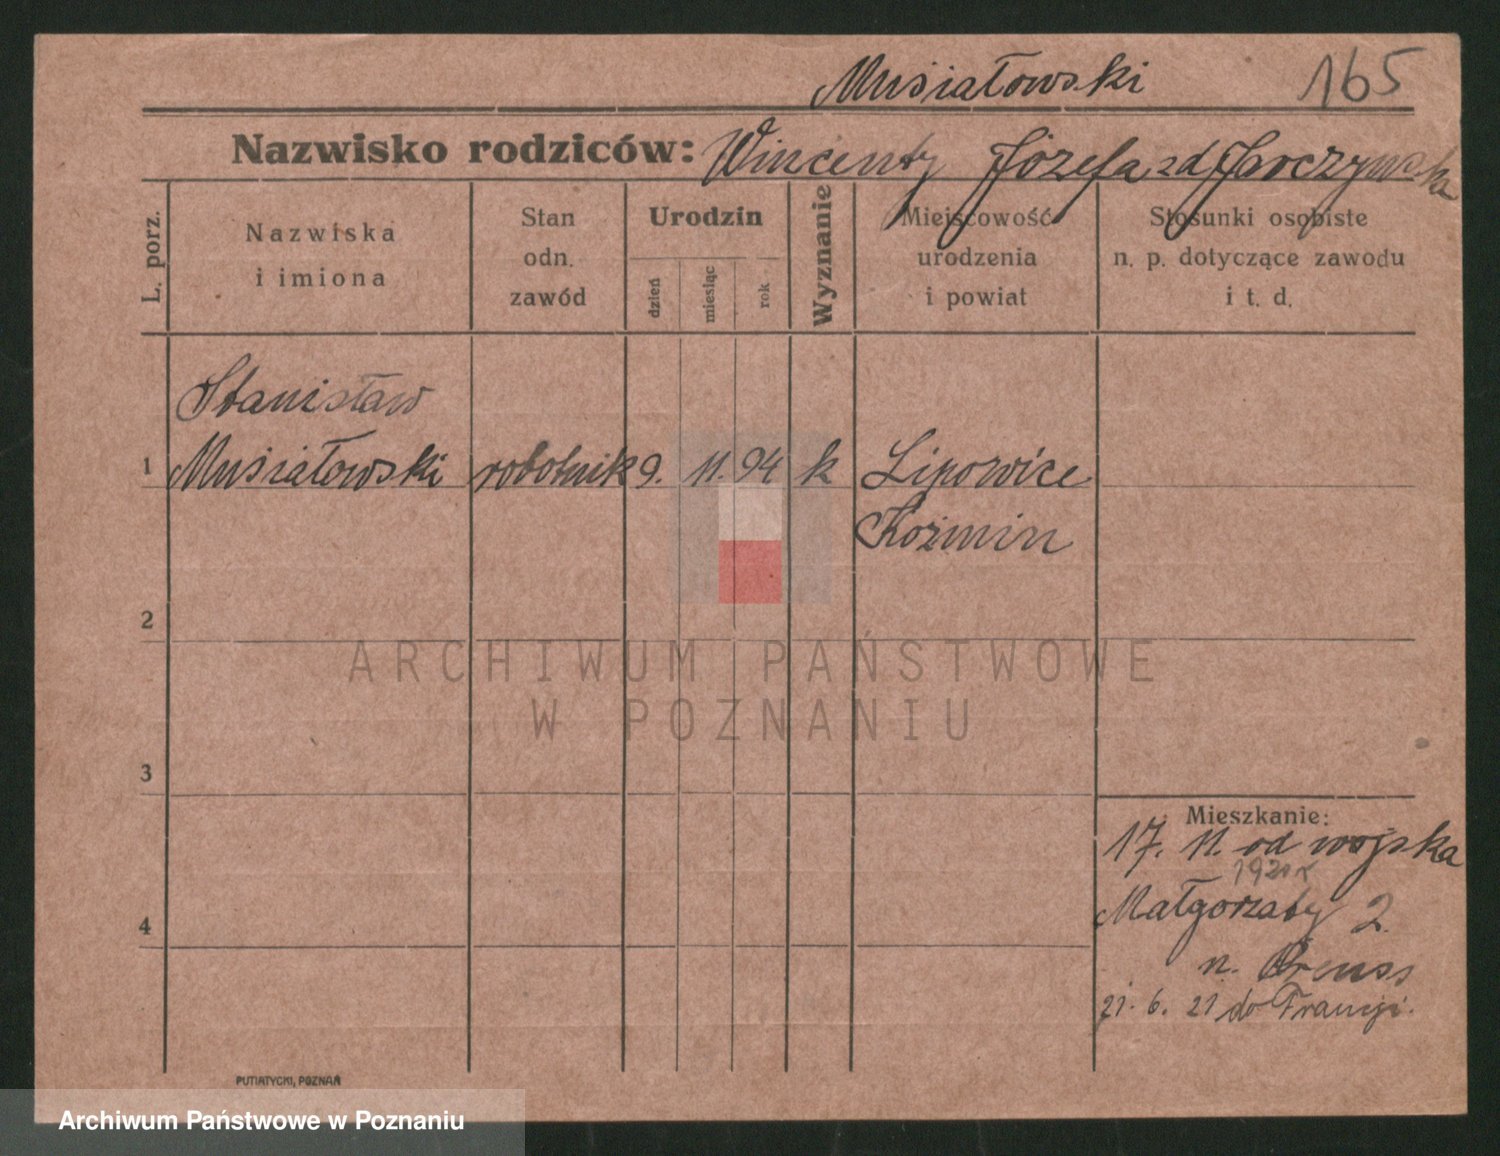 Musiałowski 165
Nazwisko rodziców: Wincenty Józefa zd Jarczyńska
L. porz.
Nazwiska
i imiona
Stan
odn.
zawód
Urodzin
dzień
miesiąc
rok
Wyznanie
Miejscowość
urodzenia
i powiat
Stosunki osobiste
n. p. dotyczące zawodu
i t. d.
Stanisław
1 Musiałowski robotnik 9. 11. 94 k Lipowice
Koźmin
2
3
4
Mieszkanie:
17. 11. od wojska
1920 r
Małgorzaty 2
n. Preuss
21. 6. 21 do Francji.
PUTIATYCKI, POZNAŃ
ARCHIWUM PAŃSTWOWE
W POZNANIU
Archiwum Państwowe w Poznaniu